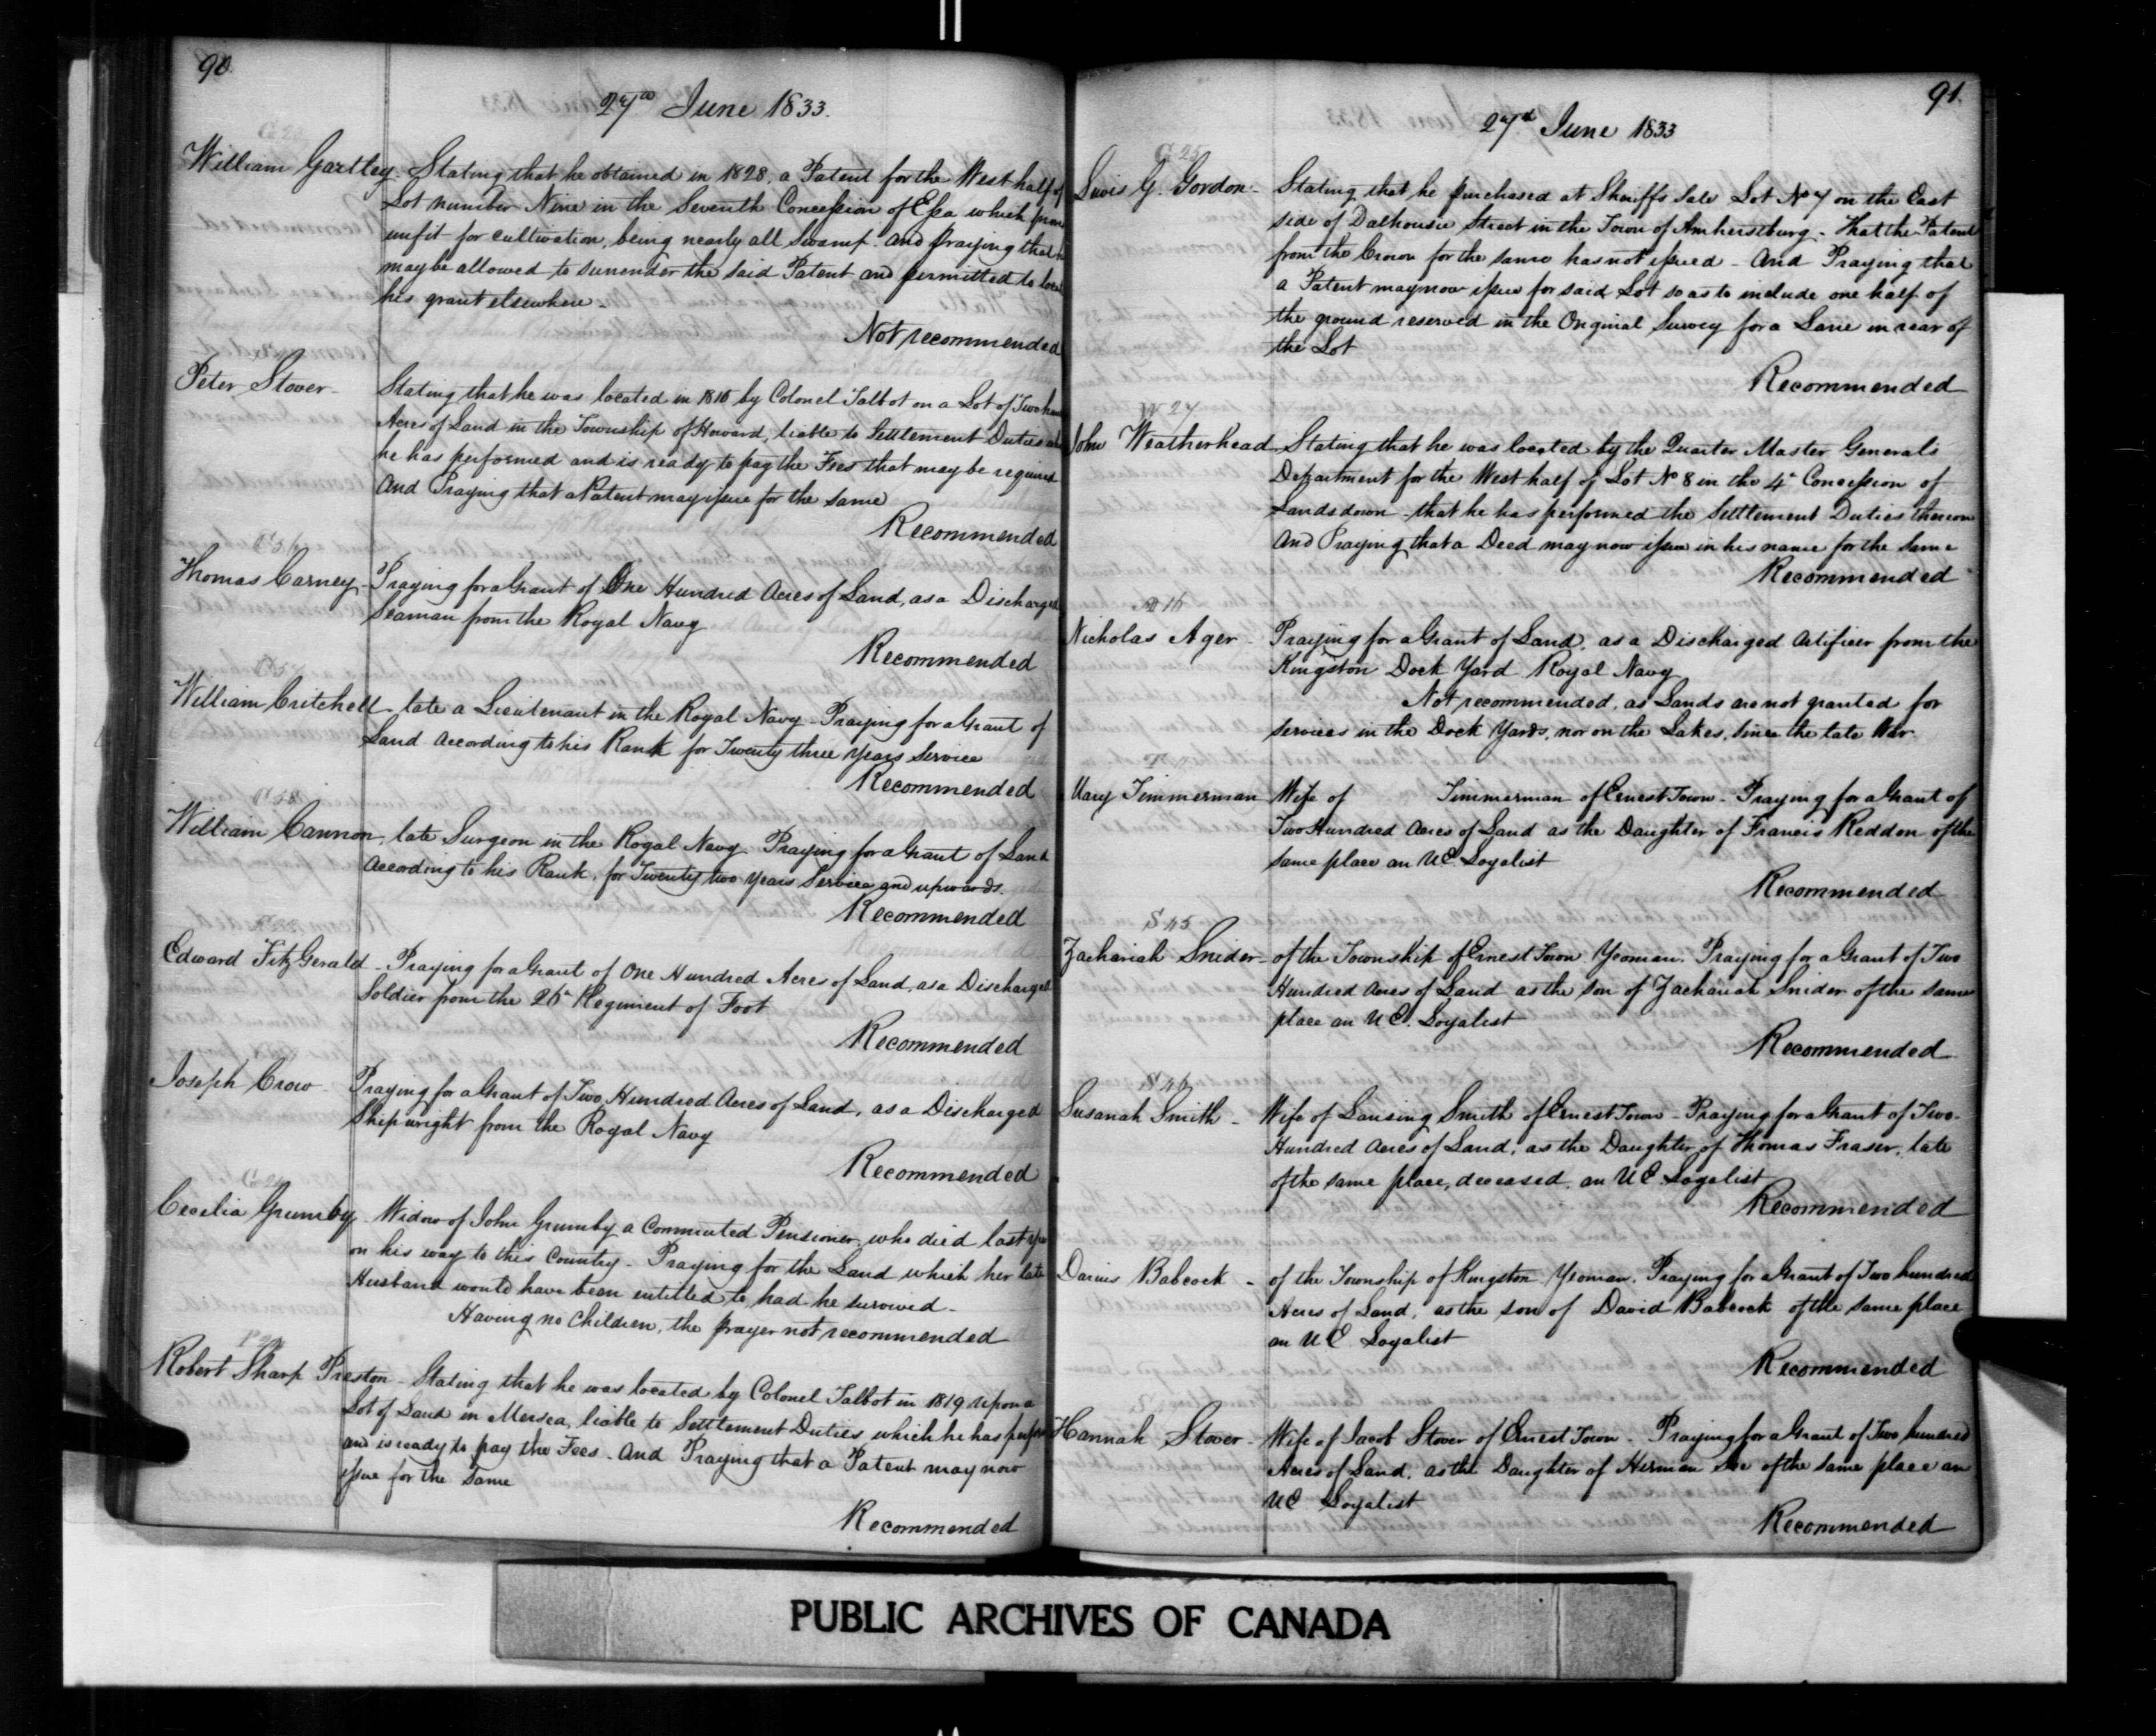 90
27th June 1833.
G 23
William Gartley - Stating that he obtained in 1828, a Patent for the West half of
Lot number Nine in the Seventh Concession of Essa which
unfit for cultivation, being nearly all Swamp. And Praying that
may be allowed to surrender the said Patent and permitted to
his grant elsewhere -
Not recommended
Peter Stover - Stating that he was located in 1816 by Colonel Talbot on a Lot of Two
Acres of Land in the Township of Howard, liable to Settlement Duties
he has performed and is ready to pay the Fees that may be required
And Praying that a Patent may issue for the same
Recommended
C 56
Thomas Carney - Praying for a Grant of One Hundred Acres of Land, as a Discharged
Seaman from the Royal Navy
Recommended
C 57
William Critchell - late a Lieutenant in the Royal Navy - Praying for a Grant of
Land According to his Rank for Twenty three Years Service
Recommended
C 58
William Cannon, late Surgeon in the Royal Navy. Praying for a Grant of Land
According to his Rank, for Twenty two Years Service and upwards.
Recommended
Edward FitzGerald - Praying for a Grant of One Hundred Acres of Land, as a Discharged
Soldier from the 26th Regiment of Foot
Recommended
Joseph Crow - Praying for a Grant of Two Hundred Acres of Land, as a Discharged
Shipwright from the Royal Navy
Recommended
Cecelia Grumby - Widow of John Grumby a Commuted Pensioner, who died last
on his way to this Country - Praying for the Land which her late
Husband would have been entitled to, had he survived -
Having no Children, the prayer not recommended
Robert Sharp Preston - Stating that he was located by Colonel Talbot in 1819 upon a
Lot of Land in Mersea, liable to Settlement Duties which he has
and is ready to pay the Fees - And Praying that a Patent may now
issue for the same
Recommended
91
27th June 1833
G 25
Lewis G. Gordon - Stating that he purchased at Sheriffs Sale Lot No 7 on the East
side of Dalhousie Street in the Town of Amherstburg - That the Patent
from the Crown for the same has not issued - And Praying that
a Patent may now issue for said Lot so as to include one half of
the ground reserved in the Original Survey for a Lane in rear of
the Lot
Recommended
W 27
John Weatherhead - Stating that he was located by the Quarter Master General's
Department for the West half of Lot No 8 in the 4th Concession of
Landsdown - that he has performed the Settlement Duties thereon
And Praying that a Deed may now issue in his name for the Same
Recommended
A 16
Nicholas Ager - Praying for a Grant of Land, as a Discharged Artificer from the
Kingston Dock Yard Royal Navy
Not recommended, as Lands are not granted for
services in the Dock Yards, nor on the Lakes, since the late War.
Mary Timmerman - Wife of Timmerman of Ernest Town - Praying for a Grant of
Two Hundred Acres of Land as the Daughter of Francis Reddon of the
same place an UE Loyalist
Recommended
S 45
Zachariah Snider - of the Township of Ernest Town Yeoman. Praying for a Grant of Two
Hundred Acres of Land as the son of Zachariah Snider of the same
place an UE. Loyalist
Recommended
S 46
Susanah Smith - Wife of Lansing Smith of Ernest Town - Praying for a Grant of Two
Hundred Acres of Land, as the Daughter of Thomas Fraser, late
of the same place, deceased, an UE Loyalist
Recommended
Darius Babcock - of the Township of Kingston Yeoman. Praying for a Grant of Two hundred
Acres of Land, as the son of David Babcock of the same place
an UE Loyalist
Recommended
Hannah Stover - Wife of Jacob Stover of Ernest Town - Praying for a Grant of Two hundred
Acres of Land, as the Daughter of Herman See of the same place an
UE Loyalist
Recommended
PUBLIC ARCHIVES OF CANADA